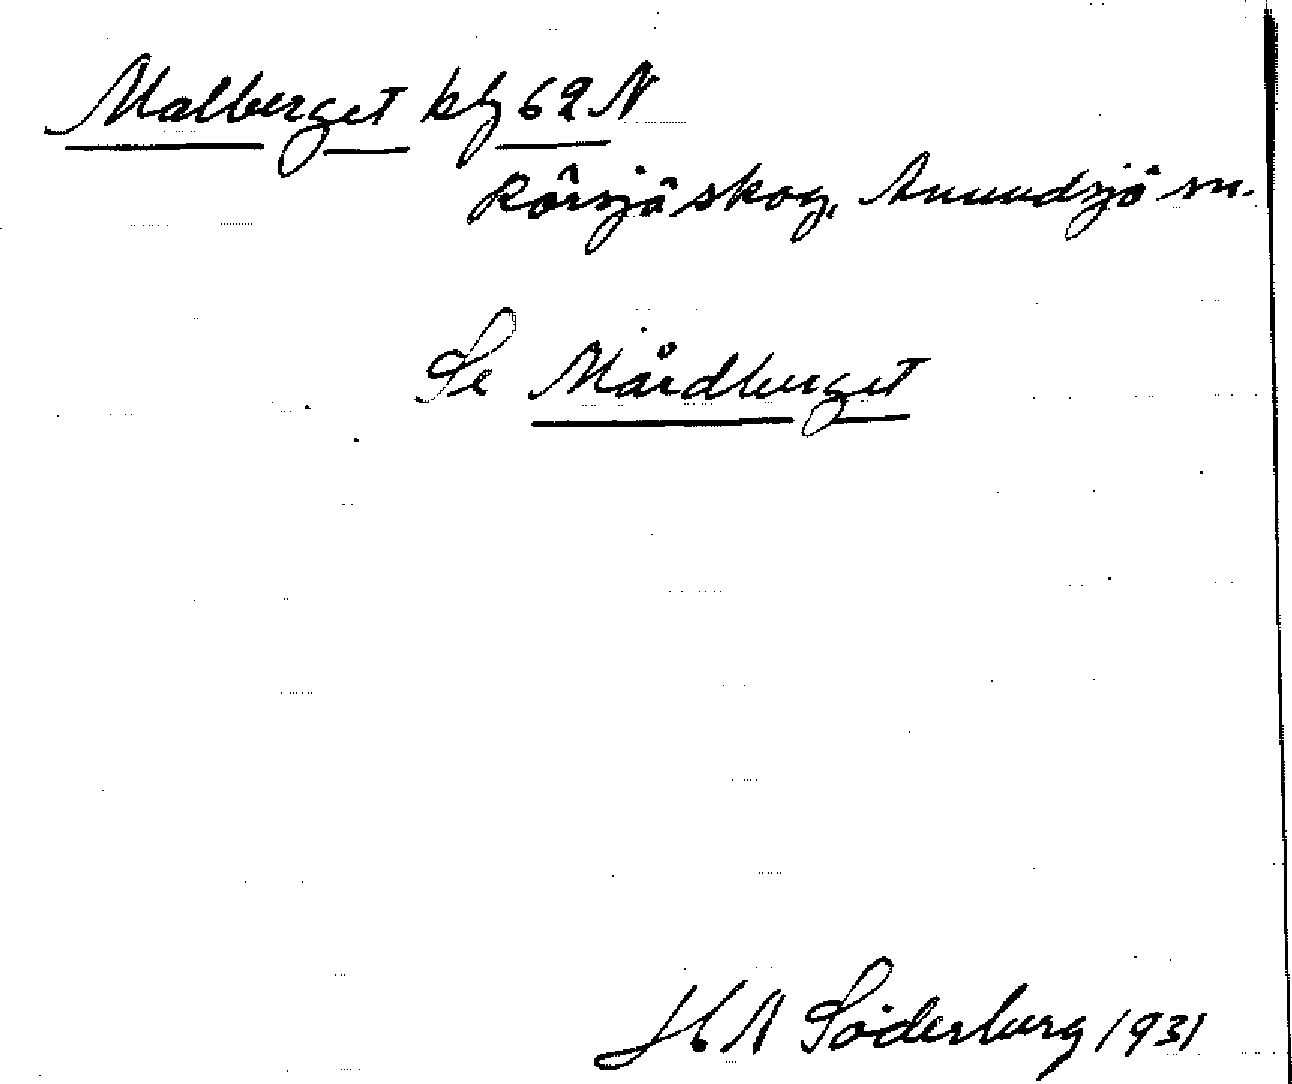 Malberget kbg 62 N
Rörsjöskog, Anundsjö sn.
Se Mårdberget
H A Söderberg 1931